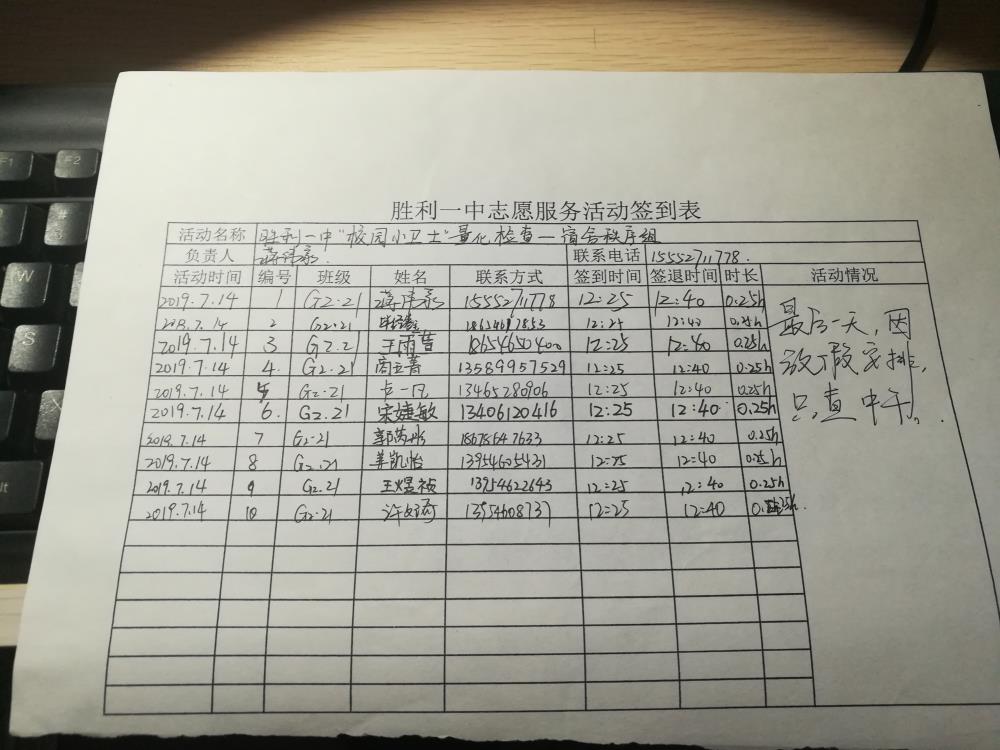 胜利一中志愿服务活动签到表
活动名称 胜利一中"校园小卫士"量化检查—宿舍秩序组
负责人 联系电话 15552711778.
活动时间 编号 班级 姓名 联系方式 签到时间 签退时间 时长 活动情况
2019.7.14 1 G2.21 15552711778 12:25 12:40 0.25h
2019.7.14 2 G2.21 12:25 12:40 0.25h
2019.7.14 3 G2.21 王雨皆 18654650400 12:25 12:40 0.25h
2019.7.14 4. G2.21 商立菁 13589957529 12:25 12:40 0.25h
2019.7.14 5 G2.21 卡一凡 13465280906 12:25 12:40 0.25h
2019.7.14 6. G2.21 宋婕敏 13406120416 12:25 12:40 0.25h
2019.7.14 7 G2.21 18678647633 12:25 12:40 0.25h
2019.7.14 8 G2.21 姜凯怡 13954605431 12:25 12:40 0.25h
2019.7.14 9 G2.21 王煜祯 13954622643 12:25 12:40 0.25h
2019.7.14 10 G2.21 12:25 12:40
最后一天,因
放假安排,
只查中午.
F1
F2
#
3
W
S
X
lt